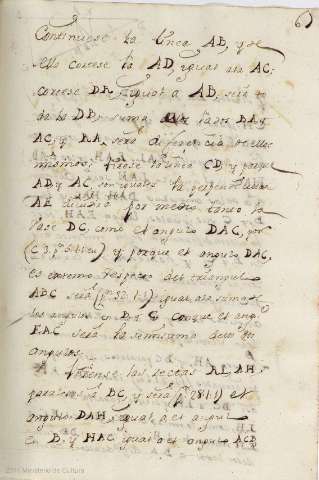 6
Continuese la linea AB, y de
ella cortese la AD igual ala AC;
cortese DR igual a AB, será to
da la DB, suma lados BA y
AC, y RA, será diferencia de ellos
mismos; tirese la linea CD, y porque
AD, y AC, son iguales la perpendicular
AE divide por medio tanto la
vase DC, como el angulo DAC, por
y porque el angulo DAC,
es externo respecto del triangulo
ABC será igual ala suma de
los angulos en B y C con que el ang.
EAC será la semisuma de los
angulos.
Tirense las rectas AH
paralelas a BC, y será (p. 28.1) el
angulo DAH, igual a el angul
en B, y HAC igual a el angulo ACB
2011 Ministerio de Cultura